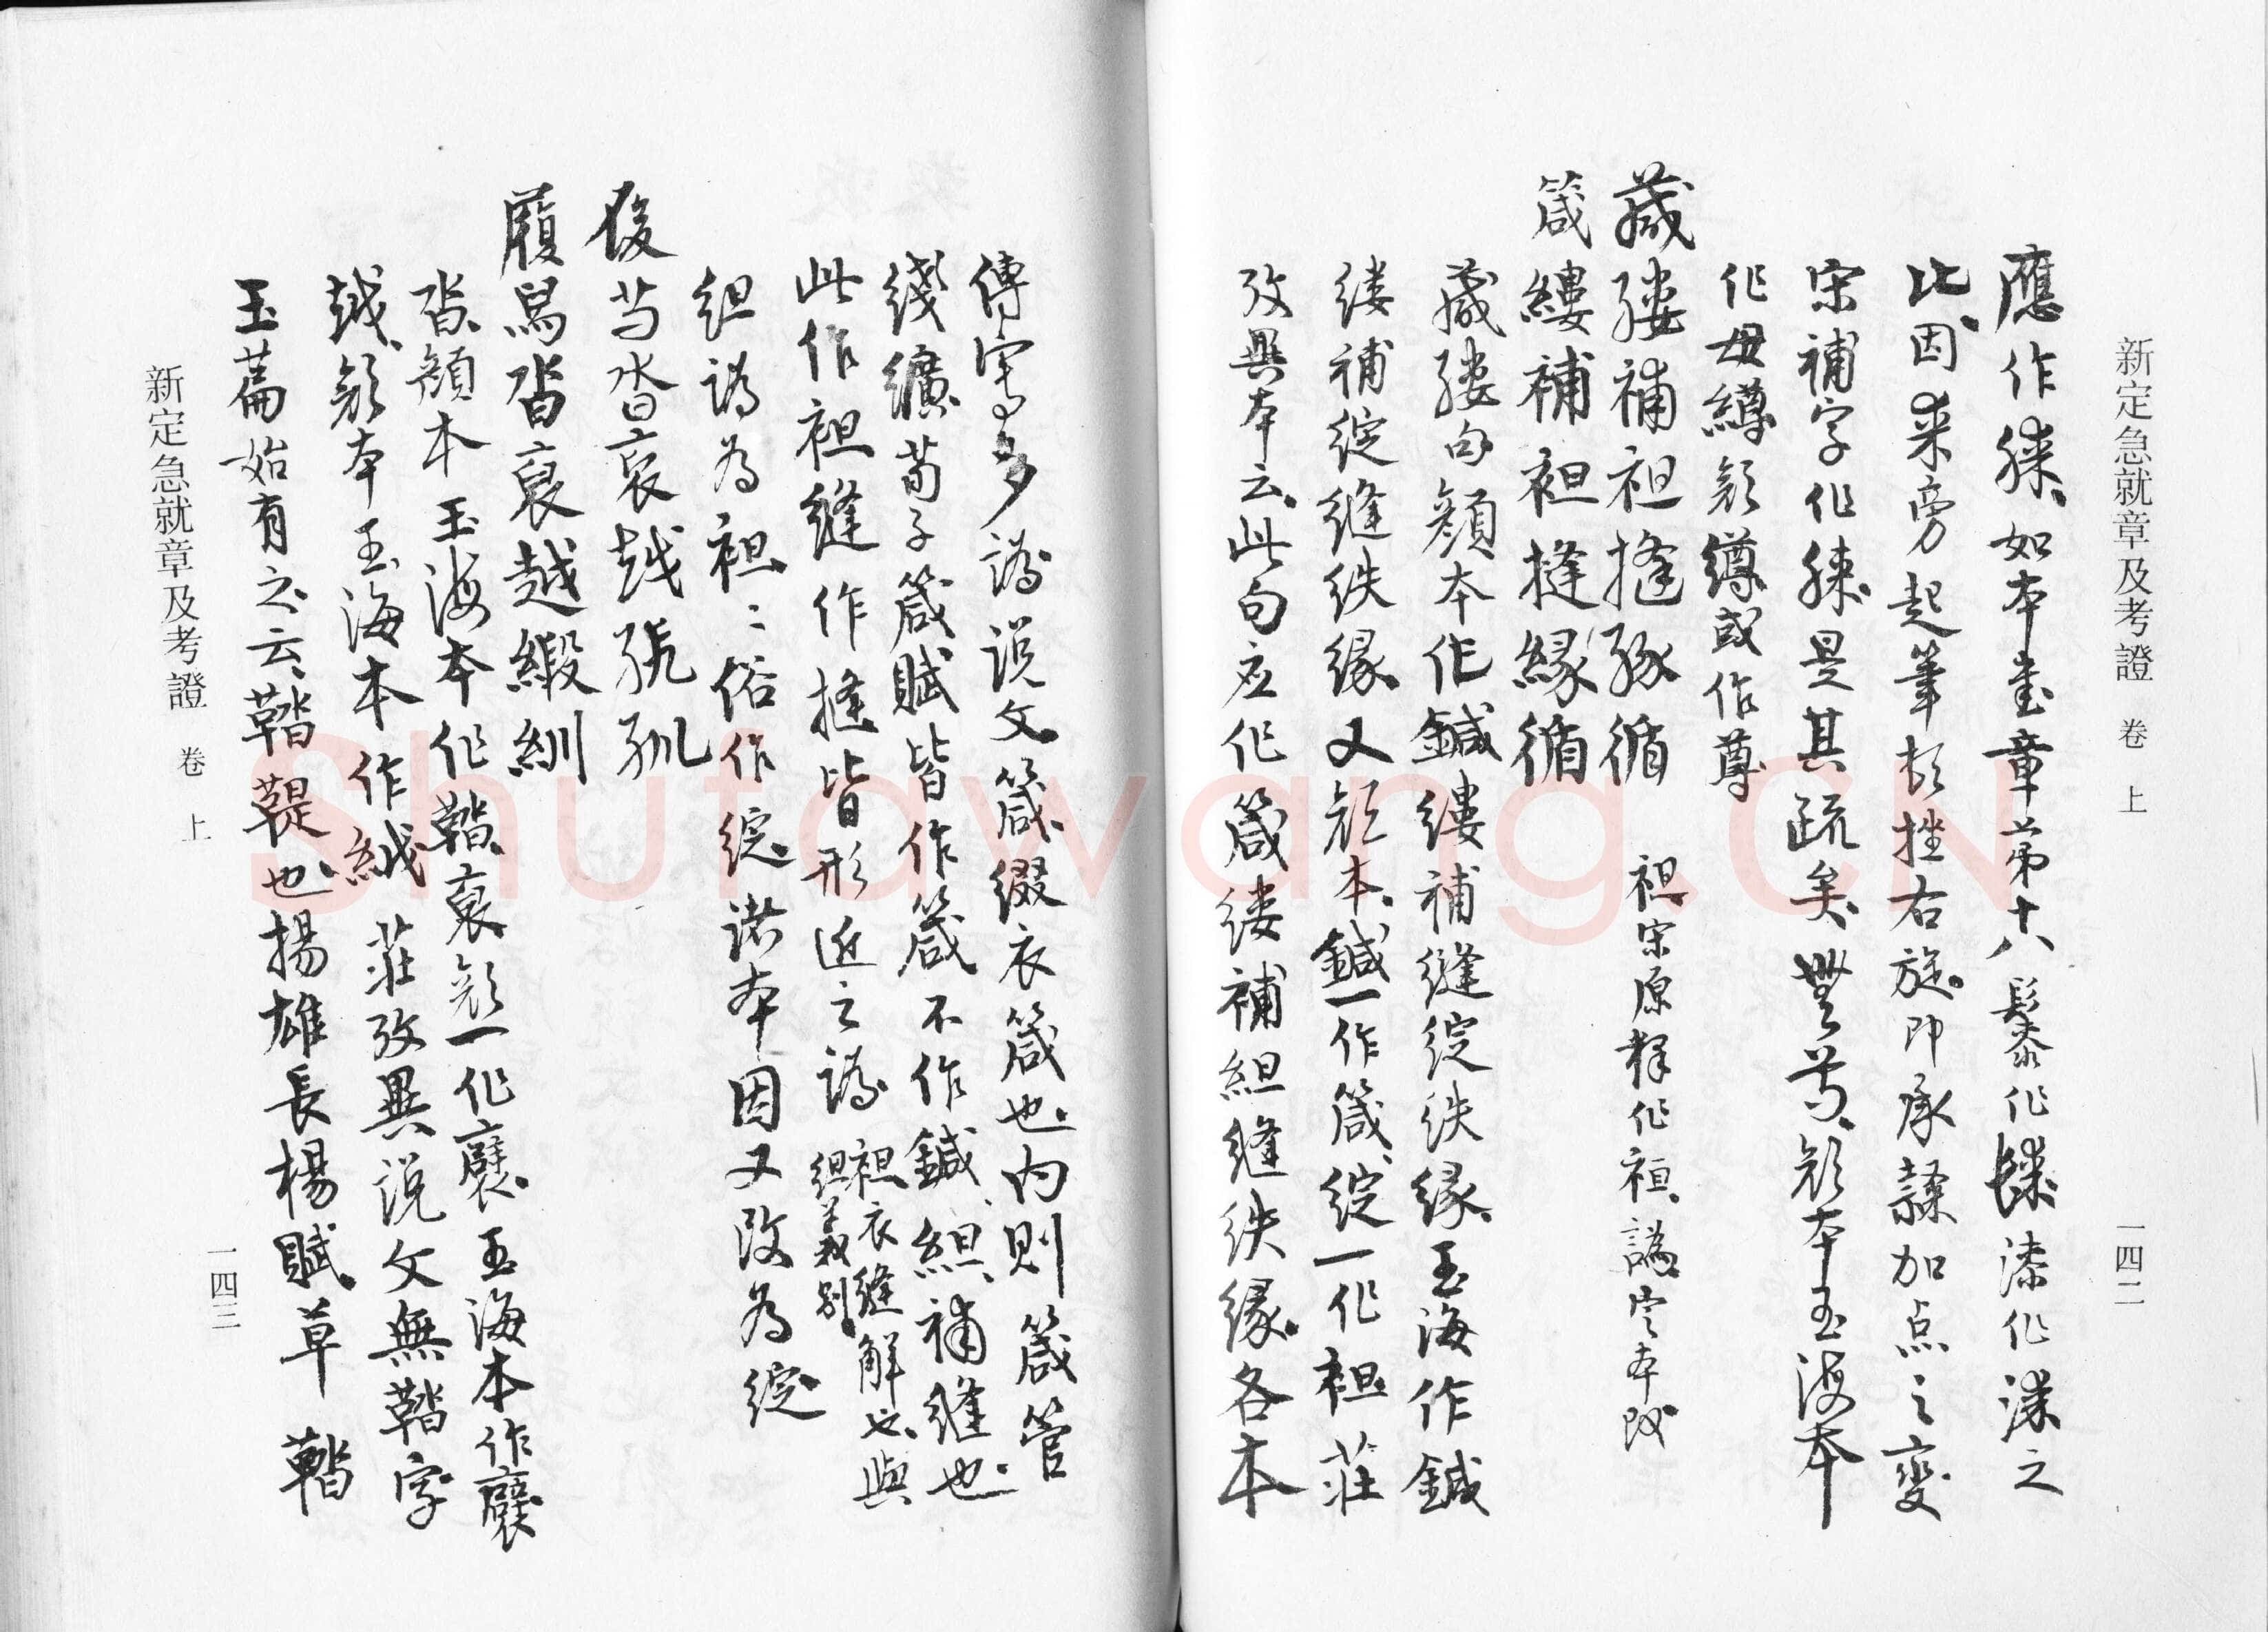 新定急就章及考證 卷上
一四二
應作䏾、如本書章第十八髹漆作䏾漆作洡之
比、因来旁起筆於挫右旋、即承隸加点之變
宋補字作是其疏矣、顏本玉海本
作母繜顏繜或作蓴
補袒摓循 袒宋原释作袒、譌
箴縷補袒摓緣循
句顏本作鍼縷補縫綻紩緣、玉海作鍼
縷補綻縫紩緣、又顏本、鍼一作箴、綻一作袒莊
攷異本云、此句应作箴縷補組縫紩緣、各本
傳寫多譌说文、箴、缀衣箴也、内则箴管
綫纊荀子箴賦皆作箴不作鍼、組、補縫也
此作袒縫作摓皆形近之譌 袒、衣縫解也、與組義别
組譌為袒、:俗作綻、诸本因又改為綻
履舄沓裒越緞紃
沓、顏本玉海本作鞜、裒、顏一作襃、玉海本作襃
越、顏本玉海本作絨 莊攷異说文無鞜字
玉篇始有之、云、鞜鞮也、揚雄長楊賦、草鞜
新定急就章及考證 卷上
一四三
Shufawang.CN